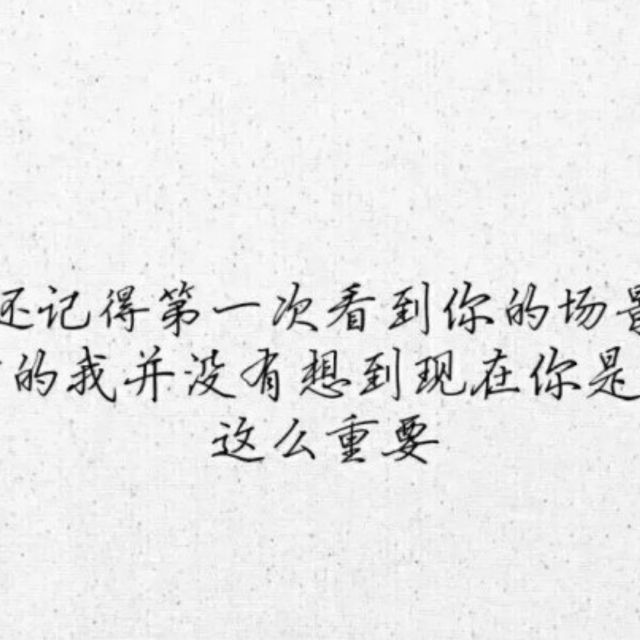 还记得第一次看到你的场景
的我并没有想到现在你是
这么重要